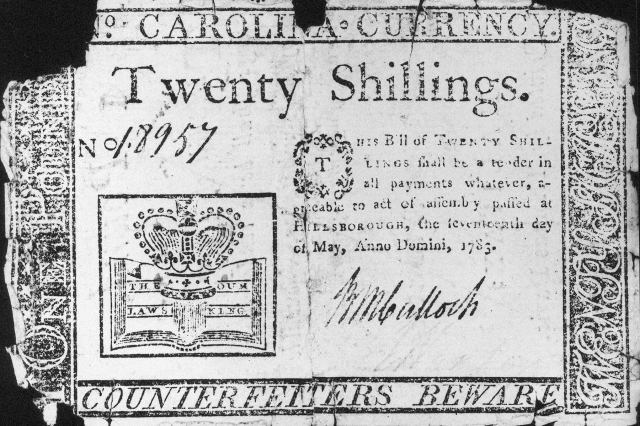 No. CAROLINA CURRENCY.
Twenty Shillings.
No 18957
THIS Bill of TWENTY SHIL-
LINGS ſhall be a tender in
all payments whatever, a-
greeable to act of aſſembly paſſed at
HILLSBOROUGH, the ſeventeenth day
of May, Anno Domini, 1783.
THE OUR
LAWS KING.
W McCulloch
COUNTERFEITERS BEWARE
ONE POUND
TWENTY SHILLINGS